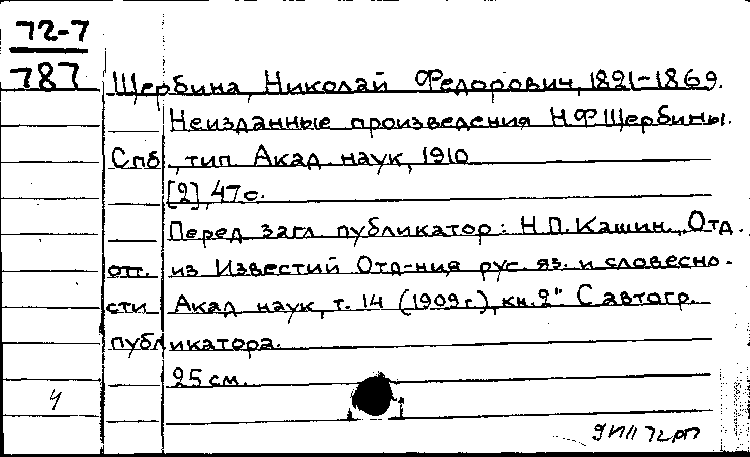 72-7
787
Щербина, Николай Федорович, 1821-1869.
Неизданные произведения Н.Ф.Щербины.
Спб., тип. Акад. наук, 1910
[2], 47 с.
Перед загл. публикатор: Н.П.Кашин. „Отд.
отт. из Известий Отд-ния рус. яз. и словесно-
сти Акад. наук, т. 14 (1909г.), кн. 2" С автогр.
публикатора.
25 см.